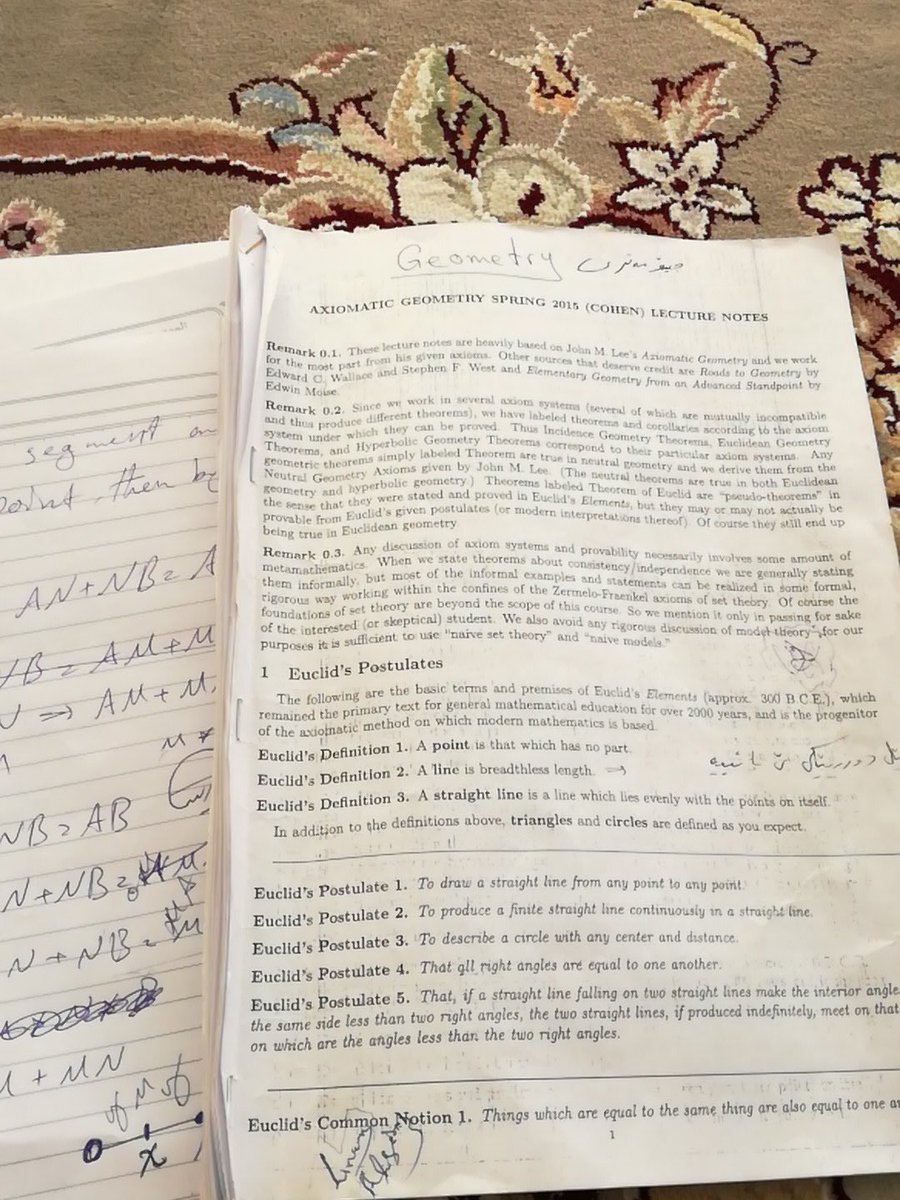 segment on
point, then by
AN+NB=A
NB=AM+M
=> AM+M
NB=AB
N+NB=
N+NB=
M+MN
of M of
x
Geometry جیۆمەتری
AXIOMATIC GEOMETRY SPRING 2015 (COHEN) LECTURE NOTES
Remark 0.1. These lecture notes are heavily based on John M. Lee's Axiomatic Geometry and we work
for the most part from his given axioms. Other sources that deserve credit are Roads to Geometry by
Edward C. Wallace and Stephen F. West and Elementary Geometry from an Advanced Standpoint by
Edwin Moise.
Remark 0.2. Since we work in several axiom systems (several of which are mutually incompatible
and thus produce different theorems), we have labeled theorems and corollaries according to the axiom
system under which they can be proved. Thus Incidence Geometry Theorems, Euclidean Geometry
Theorems, and Hyperbolic Geometry Theorems correspond to their particular axiom systems. Any
geometric theorems simply labeled Theorem are true in neutral geometry and we derive them from the
Neutral Geometry Axioms given by John M. Lee. (The neutral theorems are true in both Euclidean
geometry and hyperbolic geometry.) Theorems labeled Theorem of Euclid are "pseudo-theorems" in
the sense that they were stated and proved in Euclid's Elements, but they may or may not actually be
provable from Euclid's given postulates (or modern interpretations thereof). Of course they still end up
being true in Euclidean geometry.
Remark 0.3. Any discussion of axiom systems and provability necessarily involves some amount of
metamathematics. When we state theorems about consistency/independence we are generally stating
them informally, but most of the informal examples and statements can be realized in some formal,
rigorous way working within the confines of the Zermelo-Fraenkel axioms of set theory. Of course the
foundations of set theory are beyond the scope of this course. So we mention it only in passing for sake
of the interested (or skeptical) student. We also avoid any rigorous discussion of model theory, for our
purposes it is sufficient to use "naive set theory" and "naive models."
1 Euclid's Postulates
The following are the basic terms and premises of Euclid's Elements (approx. 300 B.C.E.), which
remained the primary text for general mathematical education for over 2000 years, and is the progenitor
of the axiomatic method on which modern mathematics is based.
Euclid's Definition 1. A point is that which has no part.
Euclid's Definition 2. A line is breadthless length. ⇒
Euclid's Definition 3. A straight line is a line which lies evenly with the points on itself.
In addition to the definitions above, triangles and circles are defined as you expect.
Euclid's Postulate 1. To draw a straight line from any point to any point.
Euclid's Postulate 2. To produce a finite straight line continuously in a straight line.
Euclid's Postulate 3. To describe a circle with any center and distance.
Euclid's Postulate 4. That all right angles are equal to one another.
Euclid's Postulate 5. That, if a straight line falling on two straight lines make the interior angle
the same side less than two right angles, the two straight lines, if produced indefinitely, meet on that
on which are the angles less than the two right angles.
Euclid's Common Notion 1. Things which are equal to the same thing are also equal to one
1